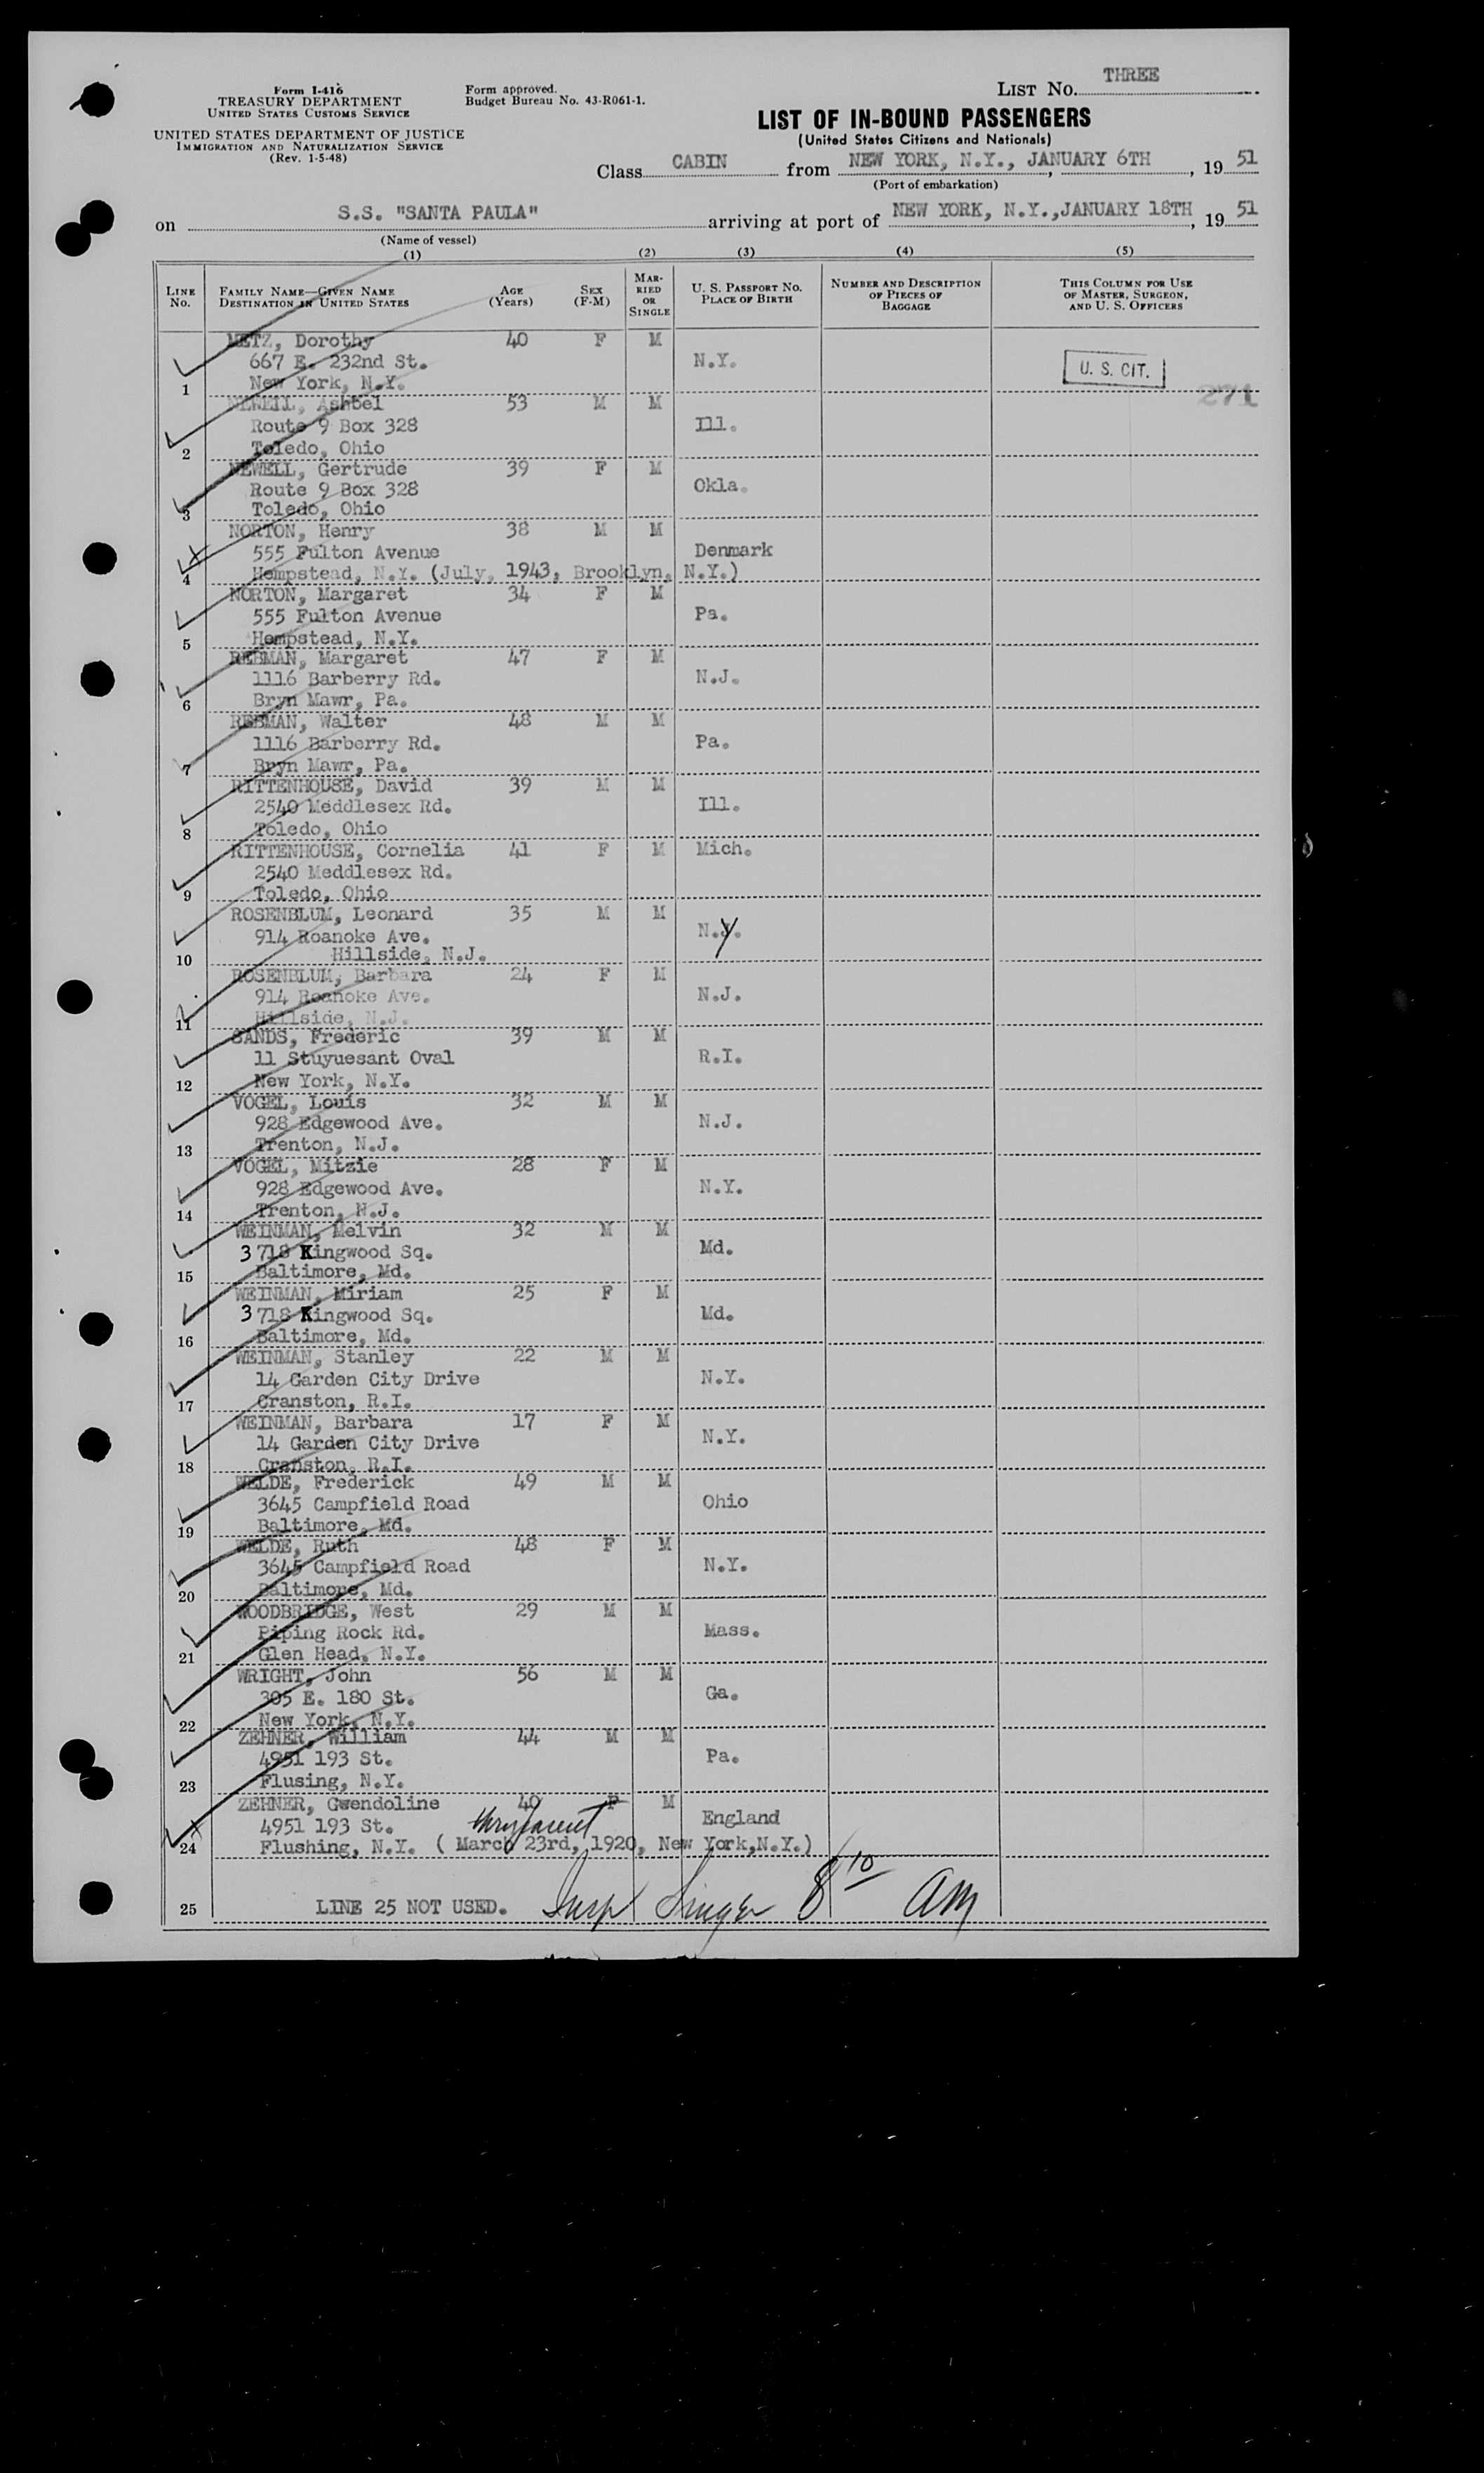 Form I-416
TREASURY DEPARTMENT
UNITED STATES CUSTOMS SERVICE
UNITED STATES DEPARTMENT OF JUSTICE
IMMIGRATION AND NATURALIZATION SERVICE
(Rev. 1-5-48)
Form approved.
Budget Bureau No. 43-R061-1.
LIST No. THREE
LIST OF IN-BOUND PASSENGERS
(United States Citizens and Nationals)
Class CABIN from NEW YORK, N.Y., JANUARY 6TH, 19 51
(Port of embarkation)
on S.S. "SANTA PAULA" arriving at port of NEW YORK, N.Y., JANUARY 18TH, 19 51
(Name of vessel)
(1) (2) (3) (4) (5)
LINE No. FAMILY NAME—GIVEN NAME DESTINATION IN UNITED STATES AGE (Years) SEX (F-M) MARRIED OR SINGLE U. S. PASSPORT No. PLACE OF BIRTH NUMBER AND DESCRIPTION OF PIECES OF BAGGAGE THIS COLUMN FOR USE OF MASTER, SURGEON, AND U. S. OFFICERS
METZ, Dorothy 40 F M
667 E. 232nd St. N.Y. U. S. CIT.
1 New York, N.Y. 271
NEWELL, Ashbel 53 M M
Route 9 Box 328 Ill.
2 Toledo, Ohio
NEWELL, Gertrude 39 F M
Route 9 Box 328 Okla.
3 Toledo, Ohio
NORTON, Henry 38 M M
555 Fulton Avenue Denmark
4 Hempstead, N.Y. (July, 1943, Brooklyn, N.Y.)
NORTON, Margaret 34 F M
555 Fulton Avenue Pa.
5 Hempstead, N.Y.
REBMAN, Margaret 47 F M
1116 Barberry Rd. N.J.
6 Bryn Mawr, Pa.
REBMAN, Walter 48 M M
1116 Barberry Rd. Pa.
7 Bryn Mawr, Pa.
RITTENHOUSE, David 39 M M
2540 Meddlesex Rd. Ill.
8 Toledo, Ohio
RITTENHOUSE, Cornelia 41 F M Mich.
2540 Meddlesex Rd.
9 Toledo, Ohio
ROSENBLUM, Leonard 35 M M
914 Roanoke Ave. N.Y.
10 Hillside, N.J.
ROSENBLUM, Barbara 24 F M
914 Roanoke Ave. N.J.
11 Hillside, N.J.
SANDS, Frederic 39 M M
11 Stuyuesant Oval R.I.
12 New York, N.Y.
VOGEL, Louis 32 M M
928 Edgewood Ave. N.J.
13 Trenton, N.J.
VOGEL, Mitzie 28 F M
928 Edgewood Ave. N.Y.
14 Trenton, N.J.
WEINMAN, Melvin 32 M M
3718 Kingwood Sq. Md.
15 Baltimore, Md.
WEINMAN, Miriam 25 F M
3718 Kingwood Sq. Md.
16 Baltimore, Md.
WEINMAN, Stanley 22 M M
14 Garden City Drive N.Y.
17 Cranston, R.I.
WEINMAN, Barbara 17 F M
14 Garden City Drive N.Y.
18 Cranston, R.I.
WELDE, Frederick 49 M M
3645 Campfield Road Ohio
19 Baltimore, Md.
WELDE, Ruth 48 F M
3645 Campfield Road N.Y.
20 Baltimore, Md.
WOODBRIDGE, West 29 M M
Piping Rock Rd. Mass.
21 Glen Head, N.Y.
WRIGHT, John 56 M M
305 E. 180 St. Ga.
22 New York, N.Y.
ZEHNER, William 44 M M
4951 193 St. Pa.
23 Flusing, N.Y.
ZEHNER, Gwendoline 40 F M
4951 193 St. England
24 Flushing, N.Y. ( March 23rd, 1920, New York,N.Y.)
25 LINE 25 NOT USED. Insp Singer 8 10 am